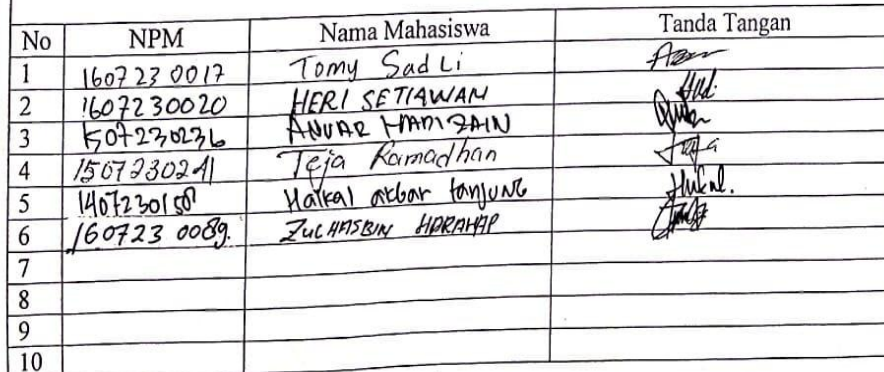 No NPM Nama Mahasiswa Tanda Tangan
1 1607230017 Tomy Sadli
2 1607230020 HERI SETIAWAN
3 1507230236 ANUAR HADI ZAIN
4 1507230241 Teja Ramadhan
5 1407230158 Haikal akbar tanjung
6 1607230089. ZULHASBIN HARAHAP
7
8
9
10